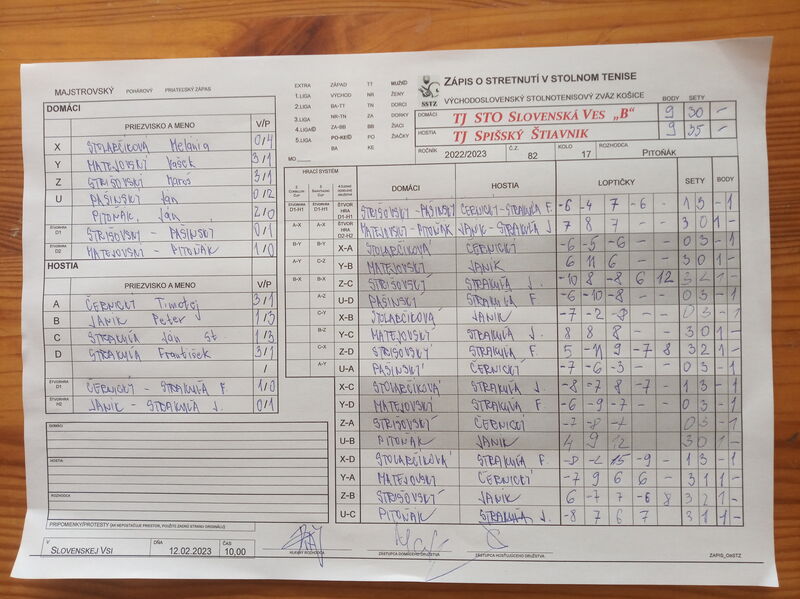 MAJSTROVSKÝ POHÁROVÝ PRIATEĽSKÝ ZÁPAS
EXTRA ZÁPAD TT MUŽI
1.LIGA VÝCHOD NR ŽENY
2.LIGA BA-TT TN DORCI
3.LIGA NR-TN ZA DORKY
4.LIGA ZA-BB BB ŽIACI
5.LIGA PO-KE PO ŽIAČKY
BA KE
MO
SSTZ
ZÁPIS O STRETNUTÍ V STOLNOM TENISE
VÝCHODOSLOVENSKÝ STOLNOTENISOVÝ ZVÄZ KOŠICE
BODY SETY
DOMÁCI TJ STO SLOVENSKÁ VES „B" 9 30 -
HOSTIA TJ SPIŠSKÝ ŠTIAVNIK 9 35 -
ROČNÍK 2022/2023 Č.Z. 82 KOLO 17 ROZHODCA PITOŇÁK
DOMÁCI
PRIEZVISKO A MENO V/P
X STOLARČÍKOVÁ Melánia 0/4
Y MATEJOVSKÝ Vašek 3/1
Z STRIŠOVSKÝ Maroš 3/1
U PAŠINSKÝ Ján 0/2
PITOŇÁK, Ján 2/0
ŠTVORHRA D1 STRIŠOVSKÝ - PAŠINSKÝ 0/1
ŠTVORHRA D2 MATEJOVSKÝ - PITOŇÁK 1/0
HOSTIA
PRIEZVISKO A MENO V/P
A ČERNICKÝ Timotej 3/1
B JANÍK Peter 1/3
C STRAKUĽA Ján st. 1/3
D STRAKUĽA František 3/1
/
ŠTVORHRA ČERNICKÝ - STRAKUĽA F. 1/0
ŠTVORHRA H2 JANÍK - STRAKUĽA J. 0/1
DOMÁCI:
HOSTIA:
ROZHODCA
PRIPOMIENKY/PROTESTY (AK NEPOSTAČUJE PRIESTOR, POUŽITE ZADNÚ STRANU ORIGINÁLU)
HRACÍ SYSTÉM
DOMÁCI HOSTIA LOPTIČKY SETY BODY
D1-H1 D1-H1 ŠTVORHRA D1-H1 STRIŠOVSKÝ-PAŠINSKÝ ČERNICKÝ-STRAKUĽA F. -6 -4 7 -6 - 1 3 - 1
A-X A-X ŠTVORHRA D2-H2 MATEJOVSKÝ-PITOŇÁK JANÍK-STRAKUĽA J. 7 8 7 - - 3 0 1 -
B-Y B-Y X-A STOLARČÍKOVÁ ČERNICKÝ -6 -5 -6 - - 0 3 - 1
A-Y C-Z Y-B MATEJOVSKÝ JANÍK 6 11 6 - - 3 0 1 -
B-X B-X Z-C STRIŠOVSKÝ STRAKUĽA J. -10 8 -8 6 12 3 2 1 -
A-Z U-D PAŠINSKÝ STRAKUĽA F. -6 -10 -8 - - 0 3 - 1
C-Y X-B STOLARČÍKOVÁ JANÍK -7 -2 -8 - - 0 3 - 1
B-Z Y-C MATEJOVSKÝ STRAKUĽA J. 8 8 8 - - 3 0 1 -
C-X Z-D STRIŠOVSKÝ STRAKUĽA F. 5 -11 9 -7 8 3 2 1 -
A-Y U-A PAŠINSKÝ ČERNICKÝ -7 -6 -3 - - 0 3 - 1
X-C STOLARČÍKOVÁ STRAKUĽA J. -8 -7 8 -7 - 1 3 - 1
Y-D MATEJOVSKÝ STRAKUĽA F. -6 -9 -7 - - 0 3 - 1
Z-A STRIŠOVSKÝ ČERNICKÝ -7 -8 -4 - - 0 3 - 1
U-B PITOŇÁK JANÍK 4 9 12 3 0 1 -
X-D STOLARČÍKOVÁ STRAKUĽA F. -8 -2 15 -9 - 1 3 - 1
Y-A MATEJOVSKÝ ČERNICKÝ -7 9 6 6 - 3 1 1 -
Z-B STRIŠOVSKÝ JANÍK 6 -7 7 -6 8 3 2 1 -
U-C PITOŇÁK STRAKUĽA J. -8 7 6 7 3 1 1 -
V SLOVENSKEJ VSI DŇA 12.02.2023 ČAS 10,00
HLAVNÝ ROZHODCA ZÁSTUPCA DOMÁCEHO DRUŽSTVA ZÁSTUPCA HOSŤUJÚCEHO DRUŽSTVA ZAPIS_ObSTZ